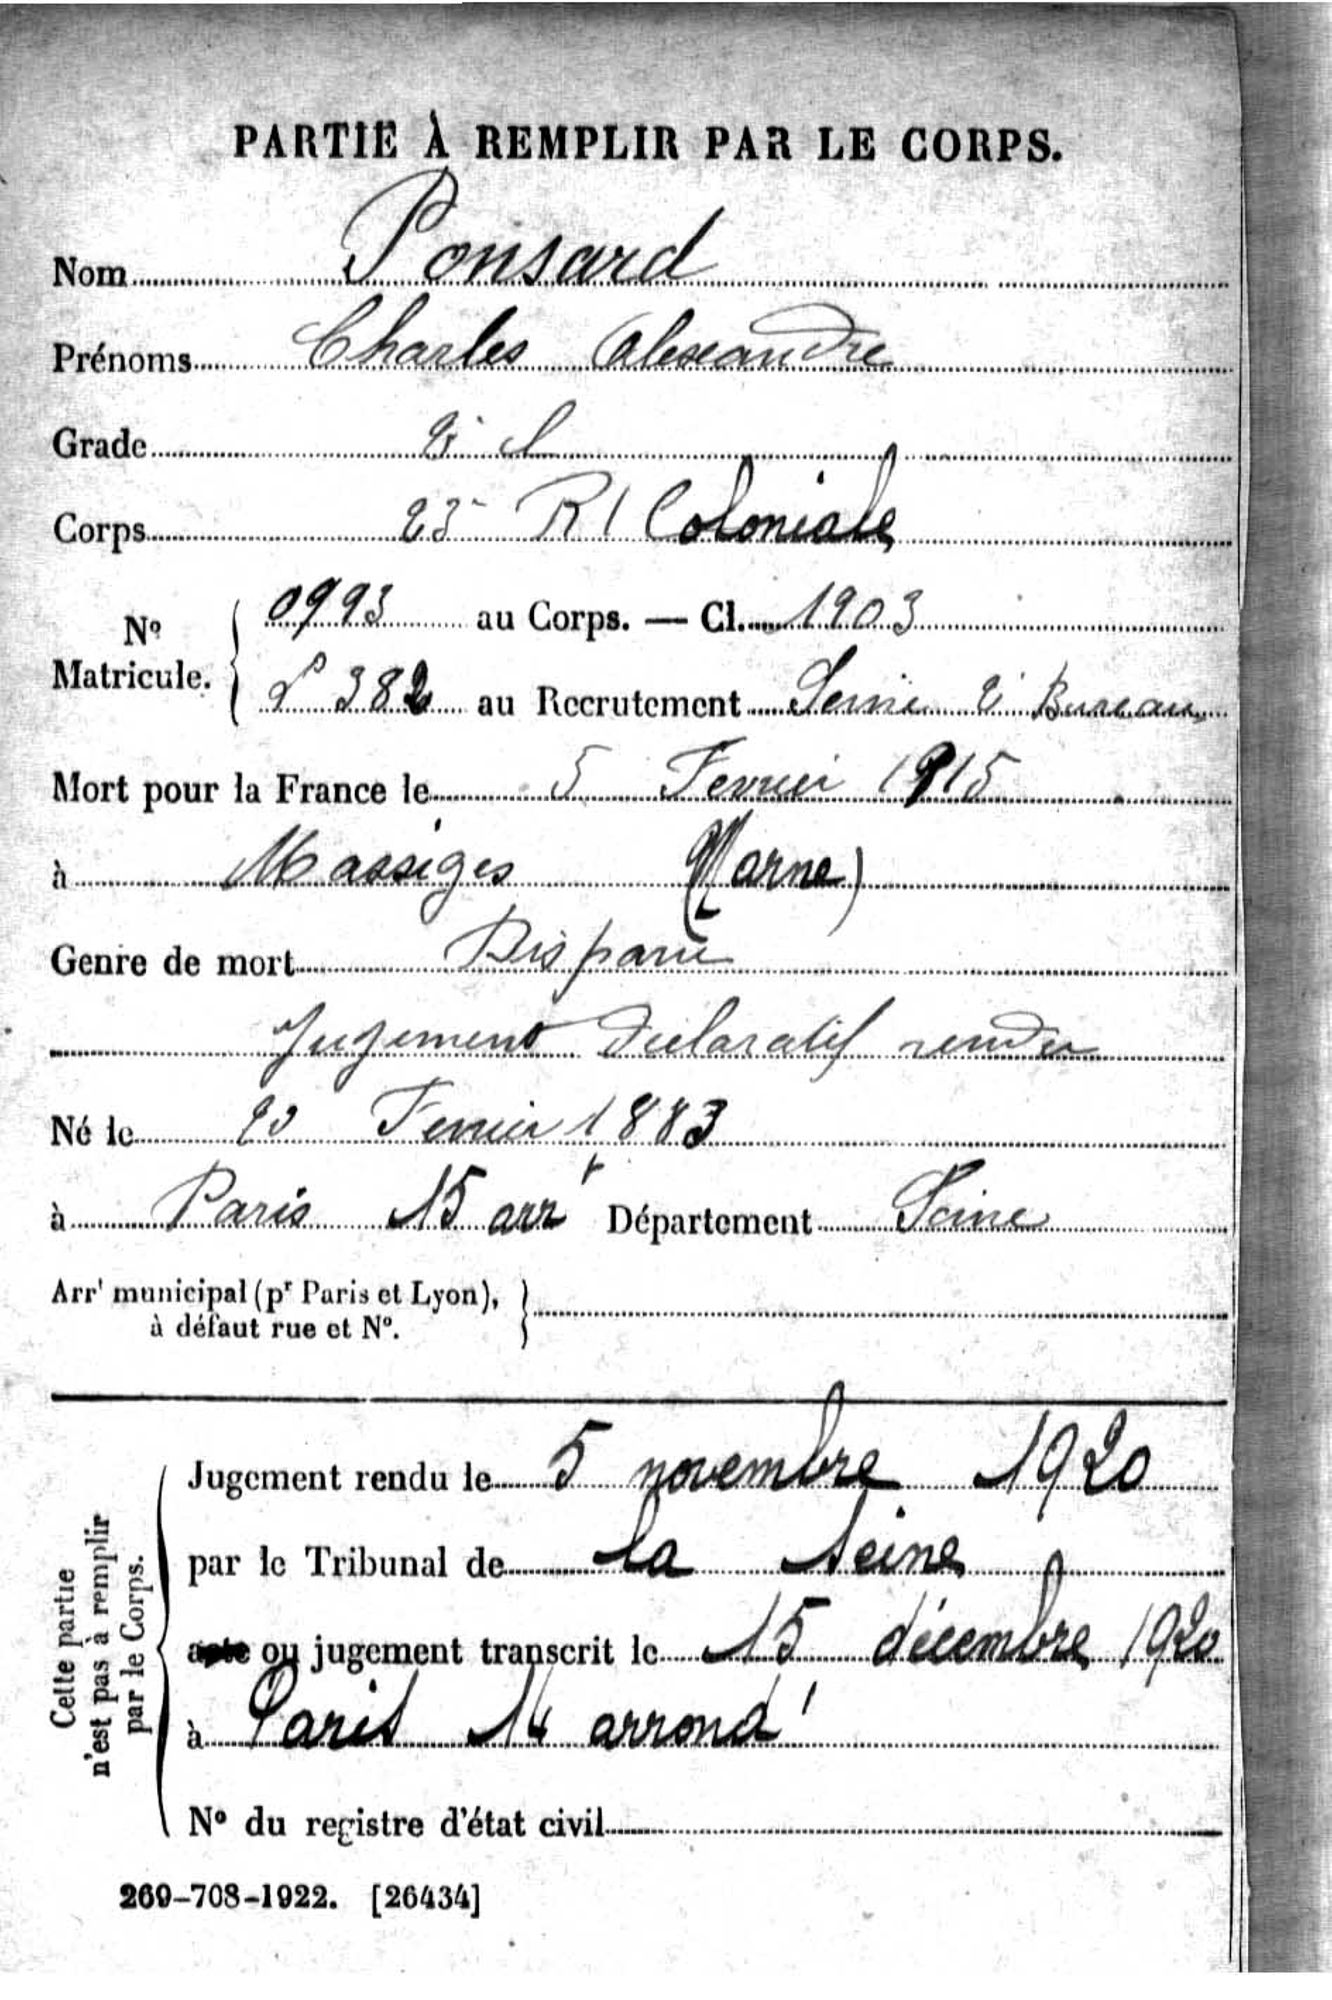 PARTIE À REMPLIR PAR LE CORPS.
Nom Ponsard
Prénoms Charles Alexandre
Grade 2e cl
Corps 23e RI Coloniale
No Matricule. { 0993 au Corps. — Cl. 1903
382 au Recrutement Seine 2e Bureau
Mort pour la France le 5 Fevrier 1915
à Massiges (Marne)
Genre de mort Disparu
Jugement déclaratif rendu
Né le Fevrier 1883
à Paris 15 arrt Département Seine
Arrt municipal (pr Paris et Lyon), à défaut rue et No. }
Cette partie n'est pas à remplir par le Corps.
Jugement rendu le 5 novembre 1920
par le Tribunal de la Seine
acte ou jugement transcrit le 15 décembre 1920
à Paris 14 arrondt
No du registre d'état civil
269-708-1922. [26434]